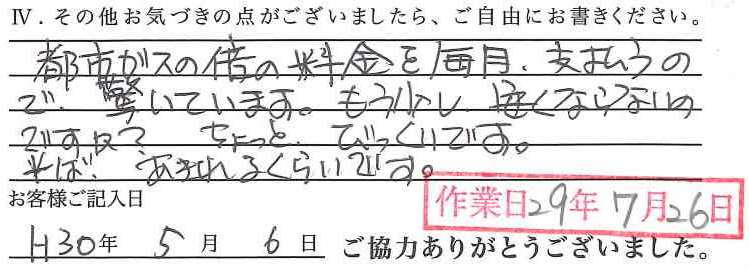 Ⅳ．その他お気づきの点がございましたら、ご自由にお書きください。
都市ガスの倍の料金を毎月、支払うの
で、驚いています。もう少し、
ですか? ちょっと、びっくりです。
あきれるくらいです。
お客様ご記入日
作業日29年7月26日
H30年 5月 6日 ご協力ありがとうございました。